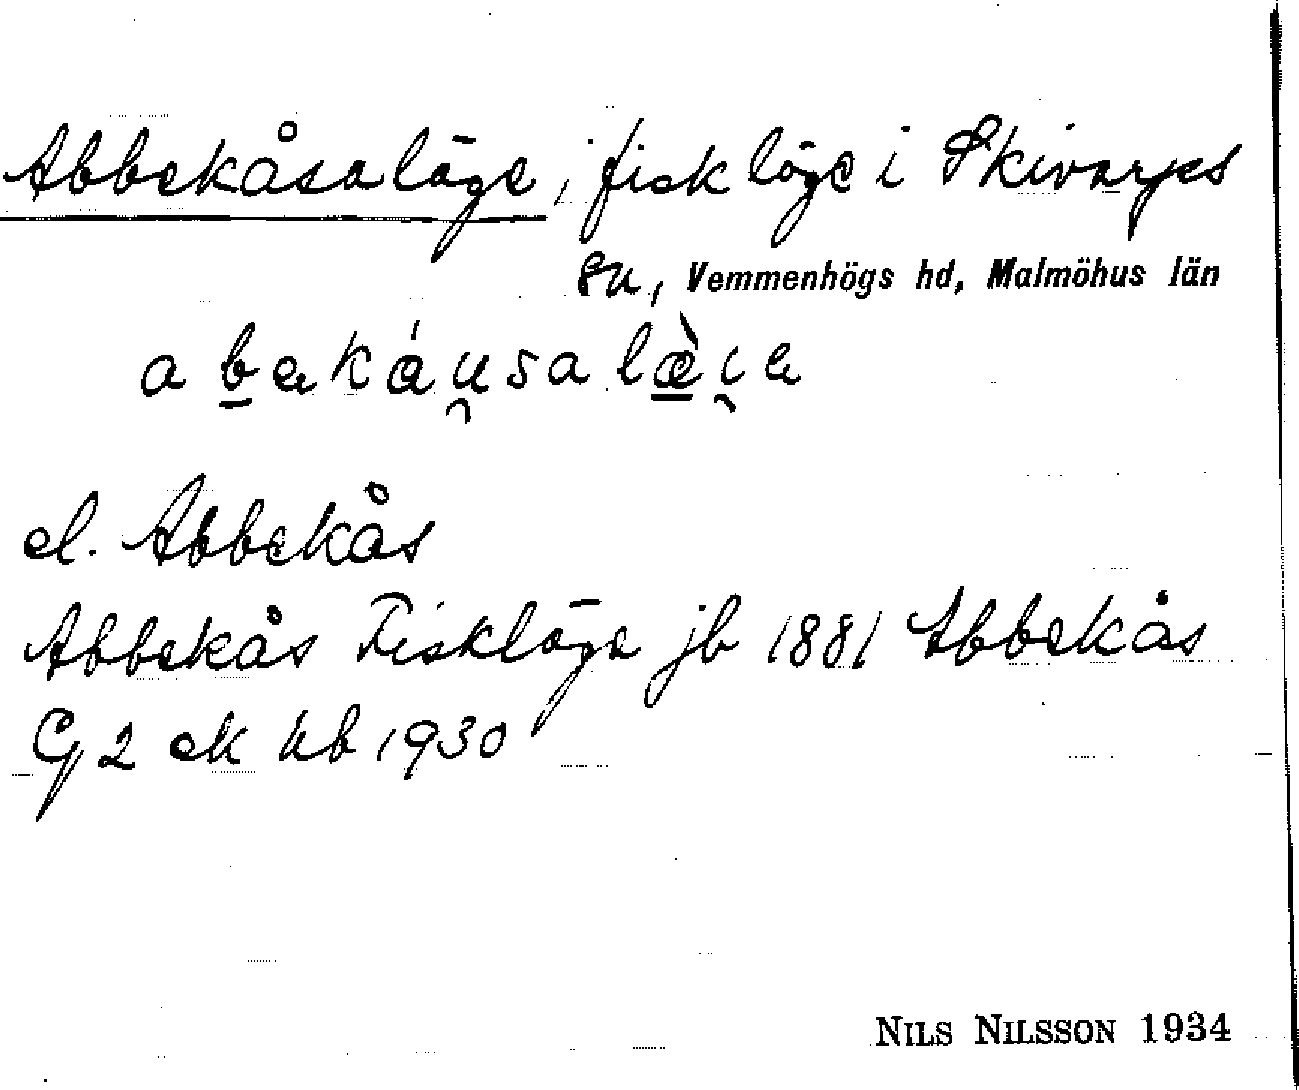 Abbekåsaläge, fiskläge i Skivarps
sn, Vemmenhögs hd, Malmöhus län
abekáu̯salæ̀i̯a
el. Abbekås
Abbekås Fiskläge jb 1881 Abbekås
G 2 ek kb 1930
NILS NILSSON 1934